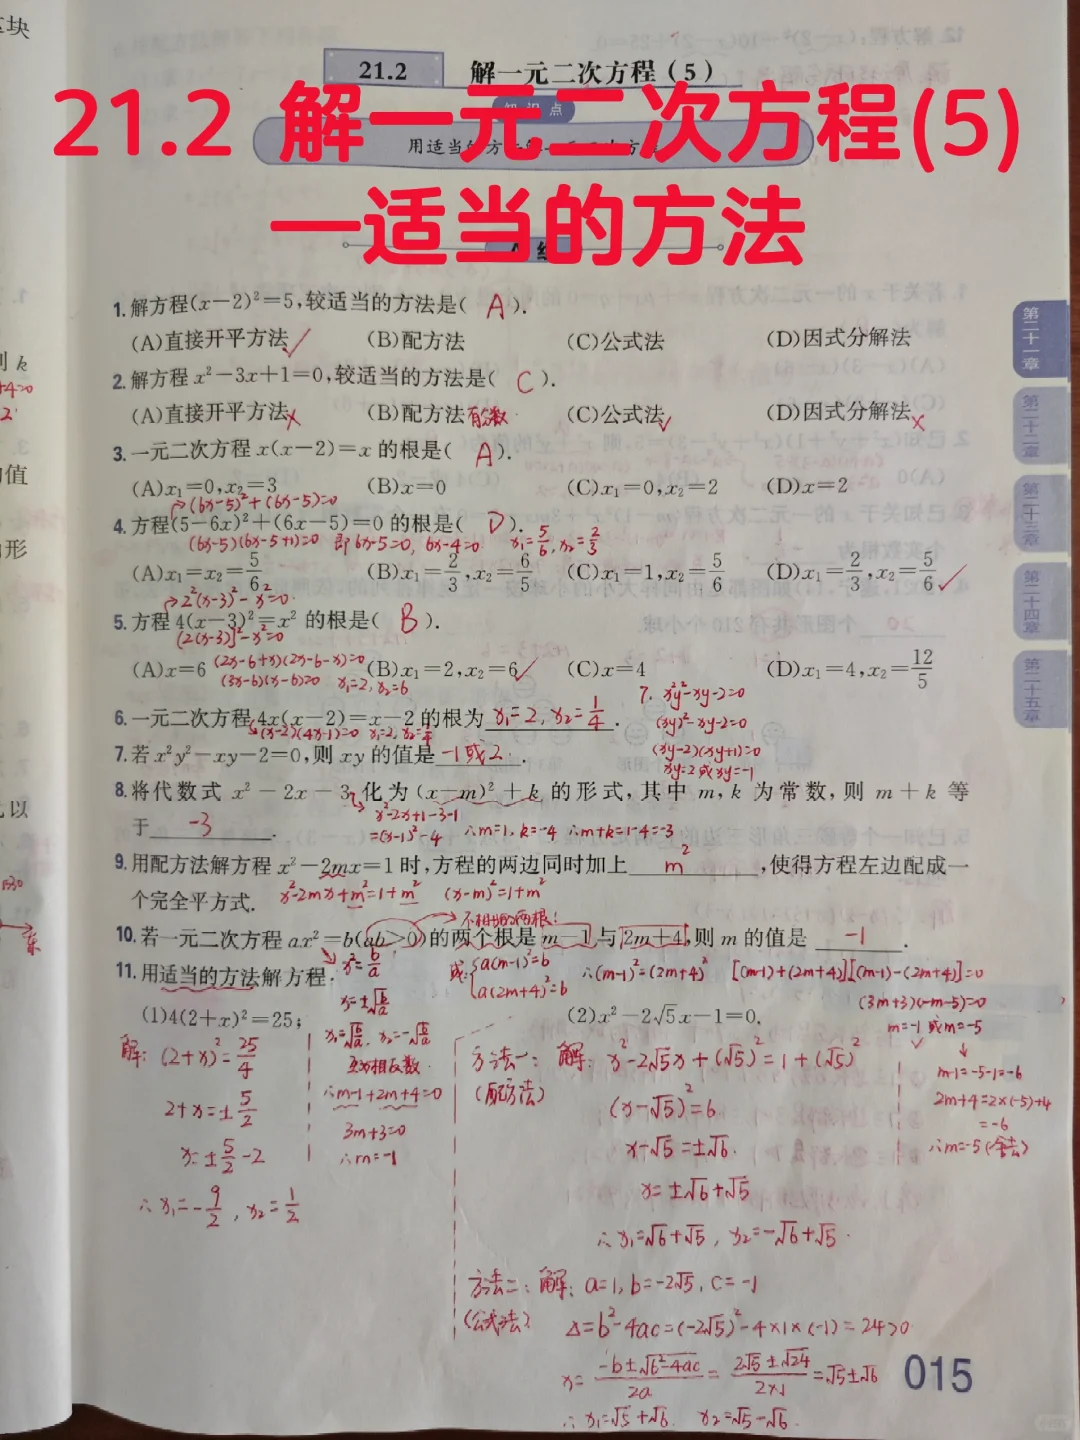 21.2 解一元二次方程(5)
知识点
21.2 解一元二次方程(5)
—适当的方法
1.解方程(x-2)²=5,较适当的方法是( A ).
(A)直接开平方法✓ (B)配方法 (C)公式法 (D)因式分解法
2.解方程 x²-3x+1=0,较适当的方法是( C ).
(A)直接开平方法× (B)配方法 有分数 (C)公式法✓ (D)因式分解法×
3.一元二次方程 x(x-2)=x 的根是( A ).
(A)x₁=0,x₂=3 (B)x=0 (C)x₁=0,x₂=2 (D)x=2
(6x-5)²+(6x-5)=0
4.方程(5-6x)²+(6x-5)=0 的根是( D ).
(6x-5)(6x-5+1)=0 即6x-5=0, 6x-4=0 x₁=5/6, x₂=2/3
(A)x₁=x₂=5/6 (B)x₁=2/3,x₂=6/5 (C)x₁=1,x₂=5/6 (D)x₁=2/3,x₂=5/6✓
2²(x-3)²-x²=0.
5.方程 4(x-3)²=x² 的根是( B ).
[2(x-3)]²-x²=0
(A)x=6 (B)x₁=2,x₂=6✓ (C)x=4 (D)x₁=4,x₂=12/5
(2x-6+x)(2x-6-x)=0
(3x-6)(x-6)=0 x₁=2, x₂=6
6.一元二次方程 4x(x-2)=x-2 的根为 x₁=2, x₂=1/4 .
(x-2)(4x-1)=0 x₁=2, x₂=1/4
7.若 x²y²-xy-2=0,则 xy 的值是 -1或2 .
7. x²y²-xy-2=0
(xy)²-xy-2=0
(xy-2)(xy+1)=0
xy=2或xy=-1
8.将代数式 x²-2x-3 化为(x-m)²+k 的形式,其中 m,k 为常数,则 m+k 等
于 -3 .
x²-2x+1-3-1
=(x-1)²-4 ∴m=1, k=-4 ∴m+k=1-4=-3
9.用配方法解方程 x²-2mx=1 时,方程的两边同时加上 m² ,使得方程左边配成一
个完全平方式. x²-2mx+m²=1+m² (x-m)²=1+m²
不相等的两根!
10.若一元二次方程 ax²=b(ab>0)的两个根是 m-1 与 2m+4,则 m 的值是 -1 .
x²=b/a
x=±√b/a
x₁=√b/a, x₂=-√b/a
互为相反数
∴m-1+2m+4=0
3m+3=0
∴m=-1
或:{a(m-1)²=b
a(2m+4)²=b
∴(m-1)²=(2m+4)² [(m-1)+(2m+4)][(m-1)-(2m+4)]=0
(3m+3)(-m-5)=0
m=-1 或m=-5
m-1=-5-1=-6
2m+4=2×(-5)+4
=-6
∴m=-5(舍去)
11.用适当的方法解方程.
(1)4(2+x)²=25; (2)x²-2√5x-1=0.
解: (2+x)²=25/4
2+x=±5/2
x=±5/2-2
∴x₁=-9/2, x₂=1/2
方法一: 解: x²-2√5x+(√5)²=1+(√5)²
(配方法)
(x-√5)²=6
x-√5=±√6.
x=±√6+√5
∴x₁=√6+√5, x₂=-√6+√5.
方法二: 解: a=1, b=-2√5, c=-1
(公式法)
Δ=b²-4ac=(-2√5)²-4×1×(-1)=24>0
x=-b±√b²-4ac/2a=2√5±√24/2×1=√5±√6
∴x₁=√5+√6. x₂=√5-√6.
015
第二十一章
第二十二章
第二十三章
第二十四章
第二十五章